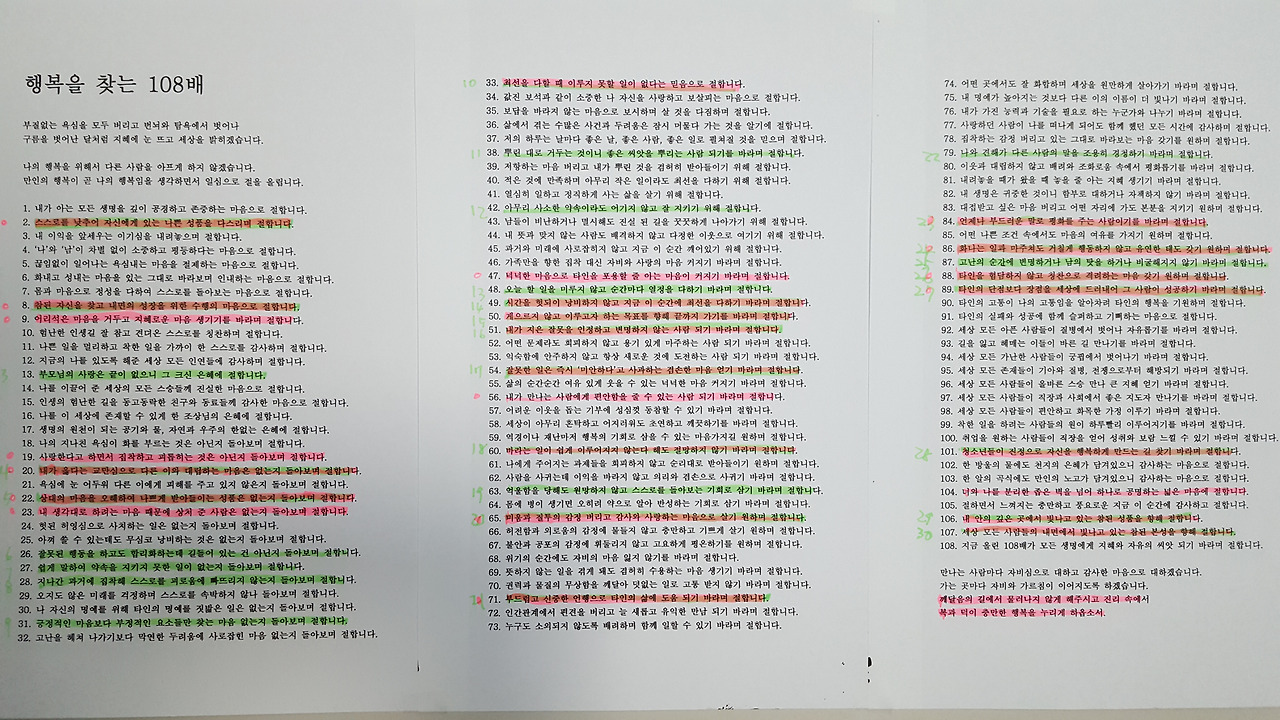 행복을 찾는 108배
부질없는 욕심을 모두 버리고 번뇌와 탐욕에서 벗어나
구름을 벗어난 달처럼 지혜에 눈 뜨고 세상을 밝히겠습니다.
나의 행복을 위해서 다른 사람을 아프게 하지 않겠습니다.
만인의 행복이 곧 나의 행복임을 생각하면서 일심으로 절을 올립니다.
1. 내가 아는 모든 생명을 깊이 공경하고 존중하는 마음으로 절합니다.
2. 스스로를 낮추어 자신에게 있는 나쁜 성품을 다스리며 절합니다.
3. 내 이익을 앞세우는 이기심을 내려놓으며 절합니다.
4. '나'와 '남'이 차별 없이 소중하고 평등하다는 마음으로 절합니다.
5. 끊임없이 일어나는 욕심내는 마음을 절제하는 마음으로 절합니다.
6. 화내고 성내는 마음을 있는 그대로 바라보며 인내하는 마음으로 절합니다.
7. 몸과 마음으로 정성을 다하여 스스로를 돌아보는 마음으로 절합니다.
8. 참된 자신을 찾고 내면의 성장을 위한 수행의 마음으로 절합니다.
9. 어리석은 마음을 거두고 지혜로운 마음 생기기를 바라며 절합니다.
10. 험난한 인생길 잘 참고 견뎌온 스스로를 칭찬하며 절합니다.
11. 나쁜 일을 멀리하고 착한 일을 가까이 한 스스로를 감사하며 절합니다.
12. 지금의 나를 있도록 해준 세상 모든 인연들에 감사하며 절합니다.
13. 부모님의 사랑은 끝이 없으니 그 크신 은혜에 절합니다.
14. 나를 이끌어 준 세상의 모든 스승들께 진실한 마음으로 절합니다.
15. 인생의 험난한 길을 동고동락한 친구와 동료들께 감사한 마음으로 절합니다.
16. 나를 이 세상에 존재할 수 있게 한 조상님의 은혜에 절합니다.
17. 생명의 원천이 되는 공기와 물, 자연과 우주의 한없는 은혜에 절합니다.
18. 나의 지나친 욕심이 화를 부르는 것은 아닌지 돌아보며 절합니다.
19. 사랑한다고 하면서 집착하고 괴롭히는 것은 아닌지 돌아보며 절합니다.
20. 내가 옳다는 교만심으로 다른 이와 대립하는 마음은 없는지 돌아보며 절합니다.
21. 욕심에 눈 어두워 다른 이에게 피해를 주고 있지 않은지 돌아보며 절합니다.
22. 상대의 마음을 오해하여 나쁘게 받아들이는 성품은 없는지 돌아보며 절합니다.
23. 내 생각대로 하려는 마음 때문에 상처 준 사람은 없는지 돌아보며 절합니다.
24. 헛된 허영심으로 사치하는 일은 없는지 돌아보며 절합니다.
25. 아껴 쓸 수 있는데도 무심코 낭비하는 것은 없는지 돌아보며 절합니다.
26. 잘못된 행동을 하고도 합리화하는데 길들어 있는 건 아닌지 돌아보며 절합니다.
27. 쉽게 말하여 약속을 지키지 못한 일이 없는지 돌아보며 절합니다.
28. 지나간 과거에 집착해 스스로를 괴로움에 빠뜨리지 않는지 돌아보며 절합니다.
29. 오지도 않은 미래를 걱정하며 스스로를 속박하지 않나 돌아보며 절합니다.
30. 나 자신의 명예를 위해 타인의 명예를 짓밟은 일은 없는지 돌아보며 절합니다.
31. 긍정적인 마음보다 부정적인 요소들만 찾는 마음 없는지 돌아보며 절합니다.
32. 고난을 헤쳐 나가기보다 막연한 두려움에 사로잡힌 마음 없는지 돌아보며 절합니다.
33. 최선을 다할 때 이루지 못할 일이 없다는 믿음으로 절합니다.
34. 값진 보석과 같이 소중한 나 자신을 사랑하고 보살피는 마음으로 절합니다.
35. 보답을 바라지 않는 마음으로 보시하며 살 것을 다짐하며 절합니다.
36. 삶에서 겪는 수많은 사건과 두려움은 잠시 머물다 가는 것을 알기에 절합니다.
37. 나의 하루는 날마다 좋은 날, 좋은 사람, 좋은 일로 펼쳐질 것을 믿으며 절합니다.
38. 뿌린 대로 거두는 것이니 좋은 씨앗을 뿌리는 사람 되기를 바라며 절합니다.
39. 자랑하는 마음 버리고 내가 틀린 것을 겸허히 받아들이기 위해 절합니다.
40. 적은 것에 만족하며 아무리 작은 일이라도 최선을 다하기 위해 절합니다.
41. 열심히 일하고 정직하게 사는 삶을 살기 위해 절합니다.
42. 아무리 사소한 약속이라도 어기지 않고 잘 지키기 위해 절합니다.
43. 남들이 비난하거나 멸시해도 진실 된 길을 꿋꿋하게 나아가기 위해 절합니다.
44. 내 뜻과 맞지 않는 사람도 배격하지 않고 다정한 이웃으로 여기기 위해 절합니다.
45. 과거와 미래에 사로잡히지 않고 지금 이 순간 깨어있기 위해 절합니다.
46. 가족만을 향한 집착 대신 자비와 사랑의 마음 커지기 위해 절합니다.
47. 넉넉한 마음으로 타인을 포용할 줄 아는 마음이 커지기 바라며 절합니다.
48. 오늘 할 일을 미루지 않고 순간마다 열정을 다하기 위해 절합니다.
49. 시간을 헛되이 낭비하지 않고 지금 이 순간에 최선을 다하기 바라며 절합니다.
50. 게으르지 않고 이루고자 하는 목표를 향해 끝까지 가기를 바라며 절합니다.
51. 내가 지은 잘못을 인정하고 변명하지 않는 사람 되기 바라며 절합니다.
52. 어떤 문제라도 회피하지 않고 용기 있게 마주하는 사람 되기 바라며 절합니다.
53. 익숙함에 안주하지 않고 항상 새로운 것에 도전하는 사람 되기 바라며 절합니다.
54. 잘못한 일은 즉시 '미안하다'고 사과하는 겸손한 마음 얻기 바라며 절합니다.
55. 삶의 순간순간 여유 있게 웃을 수 있는 넉넉한 마음 커지기 바라며 절합니다.
56. 내가 만나는 사람에게 편안함을 줄 수 있는 사람 되기 바라며 절합니다.
57. 어려운 이웃을 돕는 기부에 성심껏 동참할 수 있기 바라며 절합니다.
58. 세상이 아무리 혼탁하고 어지러워도 초연하고 깨끗하기를 바라며 절합니다.
59. 역경이나 재난마저 행복의 기회로 삼을 수 있는 마음가지길 원하며 절합니다.
60. 바라는 일이 쉽게 이루어지지 않는다 해도 절망하지 않기 바라며 절합니다.
61. 나에게 주어지는 과제들을 회피하지 않고 순리대로 받아들이기 원하며 절합니다.
62. 사람을 사귀는데 이익을 바라지 않고 의리와 겸손으로 사귀기 바라며 절합니다.
63. 억울함을 당해도 원망하지 않고 스스로를 돌아보는 기회로 삼기 바라며 절합니다.
64. 몸에 병이 생기면 오히려 약으로 알아 반성하는 기회로 삼기 바라며 절합니다.
65. 미움과 질투의 감정 버리고 감사와 사랑하는 마음으로 살기 원하며 절합니다.
66. 허전함과 외로움의 감정에 물들지 않고 충만하고 기쁘게 살기 원하며 절합니다.
67. 불안과 공포의 감정에 휘둘리지 않고 고요하게 평온하기를 원하며 절합니다.
68. 위기의 순간에도 자비의 마음 잃지 않기를 바라며 절합니다.
69. 뜻하지 않는 일을 겪게 돼도 겸허히 수용하는 마음이 생기기 바라며 절합니다.
70. 권력과 물질의 무상함을 깨달아 덧없는 일로 고통 받지 않기 바라며 절합니다.
71. 부드럽고 신중한 언행으로 타인의 삶에 도움 되기 바라며 절합니다.
72. 인간관계에서 편견을 버리고 늘 새롭고 유익한 만남 되기 바라며 절합니다.
73. 누구도 소외되지 않도록 배려하며 함께 일할 수 있기 바라며 절합니다.
74. 어떤 곳에서도 잘 화합하며 세상을 원만하게 살아가기 바라며 절합니다.
75. 내 명예가 높아지는 것보다 다른 이의 이름이 더 빛나기 바라며 절합니다.
76. 내가 가진 능력과 기술을 필요로 하는 누군가와 나누기 바라며 절합니다.
77. 사랑하던 사람이 나를 떠나게 되어도 함께 했던 모든 시간에 감사하며 절합니다.
78. 집착하는 감정 버리고 있는 그대로 바라보는 마음 갖기를 원하며 절합니다.
79. 나와 견해가 다른 사람의 말을 조용히 경청하기 바라며 절합니다.
80. 이웃과 대립하지 않고 배려와 조화로움 속에서 평화롭기를 바라며 절합니다.
81. 내려놓을 때가 왔을 때 놓을 줄 아는 지혜 생기기 바라며 절합니다.
82. 내 생명은 귀중한 것이니 함부로 대하거나 자책하지 않기 바라며 절합니다.
83. 대접받고 싶은 마음 버리고 어떤 자리에 가도 본분을 지키기 원하며 절합니다.
84. 언제나 부드러운 말로 평화를 주는 사람이기를 바라며 절합니다.
85. 어떤 나쁜 조건 속에서도 마음의 여유를 가지기 원하며 절합니다.
86. 화나는 일과 마주쳐도 거칠게 행동하지 않고 유연한 태도 갖기 원하며 절합니다.
87. 고난의 순간에 변명하거나 남의 탓을 하거나 비굴해지지 않기 바라며 절합니다.
88. 타인을 험담하지 않고 칭찬으로 격려하는 마음 갖기 원하며 절합니다.
89. 타인의 단점보다 장점을 세상에 드러내어 그 사람이 성공하기 바라며 절합니다.
90. 타인의 고통이 나의 고통임을 알아차려 타인의 행복을 기원하며 절합니다.
91. 타인의 실패와 성공에 함께 슬퍼하고 기뻐하는 마음으로 절합니다.
92. 세상 모든 아픈 사람들이 질병에서 벗어나 자유롭기를 바라며 절합니다.
93. 길을 잃고 헤매는 이들이 바른 길 만나기를 바라며 절합니다.
94. 세상 모든 가난한 사람들이 궁핍에서 벗어나기 바라며 절합니다.
95. 세상 모든 존재들이 기아와 질병, 전쟁으로부터 해방되기 바라며 절합니다.
96. 세상 모든 사람들이 올바른 스승 만나 큰 지혜 얻기 바라며 절합니다.
97. 세상 모든 사람들이 직장과 사회에서 좋은 지도자 만나기를 바라며 절합니다.
98. 세상 모든 사람들이 편안하고 화목한 가정 이루기 바라며 절합니다.
99. 착한 일을 하려는 사람들의 원이 하루빨리 이루어지기를 바라며 절합니다.
100. 취업을 원하는 사람들이 직장을 얻어 성취와 보람 느낄 수 있기 바라며 절합니다.
101. 청소년들이 진정으로 자신을 행복하게 만드는 길 찾기 바라며 절합니다.
102. 한 방울의 물에도 천지의 은혜가 담겨있으니 감사하는 마음으로 절합니다.
103. 한 알의 곡식에도 만인의 노고가 담겨있으니 감사하는 마음으로 절합니다.
104. 너와 나를 분리한 좁은 벽을 넘어 하나로 공명하는 넓은 마음에 절합니다.
105. 절하면서 느껴지는 충만하고 풍요로운 지금 이 순간에 감사하며 절합니다.
106. 내 안의 깊은 곳에서 빛나고 있는 참된 성품을 향해 절합니다.
107. 세상 모든 사람들의 내면에서 빛나고 있는 참된 본성을 향해 절합니다.
108. 지금 올린 108배가 모든 생명에게 지혜와 자유의 씨앗 되기 바라며 절합니다.
만나는 사람마다 자비심으로 대하고 감사한 마음으로 대하겠습니다.
가는 곳마다 자비와 가르침이 이어지도록 하겠습니다.
깨달음의 길에서 물러나지 않게 해주시고 진리 속에서
복과 덕이 충만한 행복을 누리게 하옵소서.